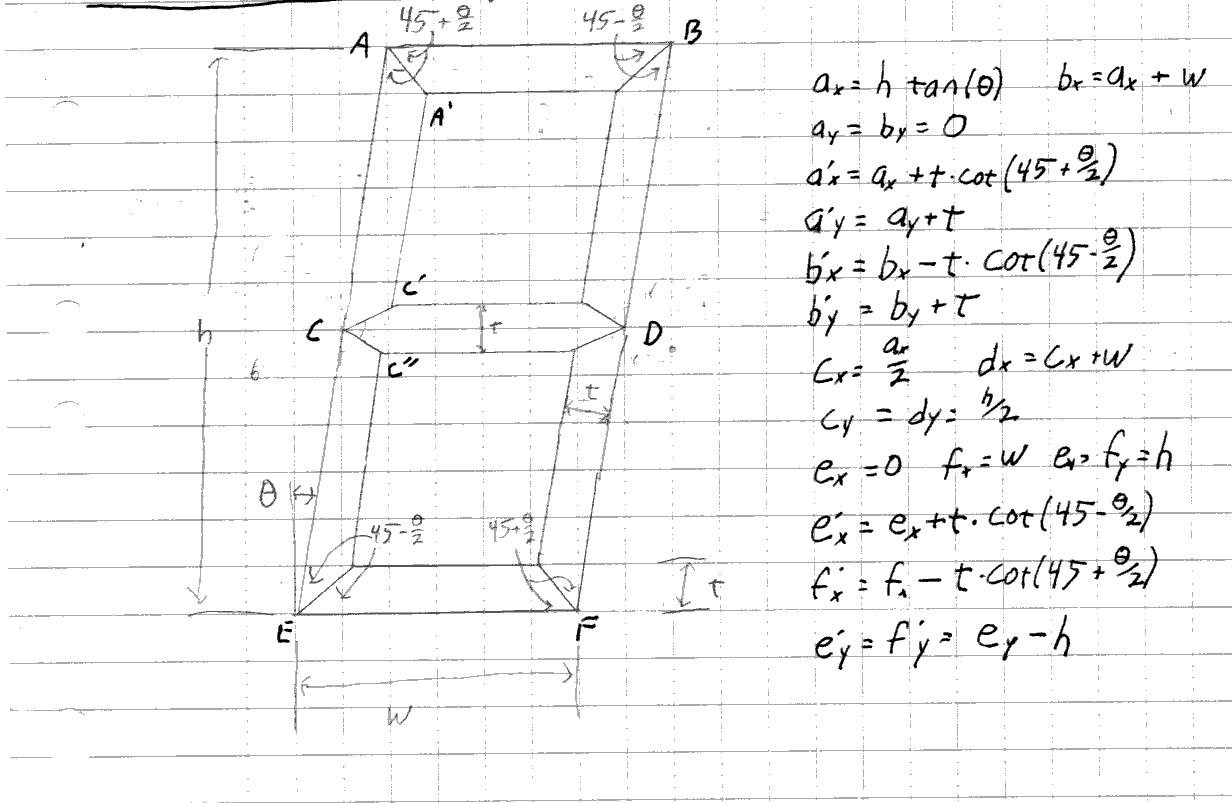 45+θ/2 45-θ/2
A B
A'
h
C' t
C D
C"
6 t
θ
45-θ/2 45+θ/2
t
E F
W
aₓ = h tan(θ) bₓ = aₓ + W
a_y = b_y = 0
a'ₓ = aₓ + t·cot(45+θ/2)
a'y = a_y + t
b'ₓ = bₓ - t· cot(45-θ/2)
b'y = b_y + t
Cₓ = aₓ/2 dₓ = Cₓ + W
C_y = d_y = h/2
eₓ = 0 fₓ = W e_y = f_y = h
e'ₓ = eₓ + t· cot(45-θ/2)
f'ₓ = fₓ - t·cot(45+θ/2)
e'y = f'y = e_y - h